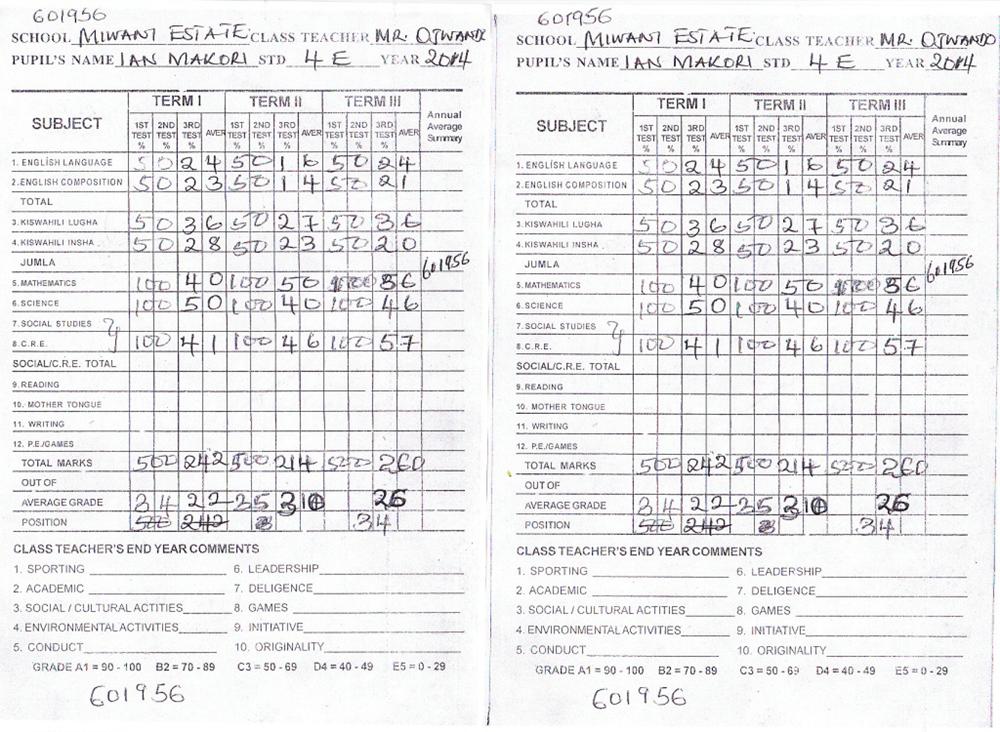 601956
SCHOOL MIWANI ESTATE CLASS TEACHER MR. OJWANDO
PUPIL'S NAME IAN MAKORI STD 4 E YEAR 2014
SUBJECT TERM I TERM II TERM III Annual Average Summary
1ST TEST % 2ND TEST % 3RD TEST % AVER 1ST TEST % 2ND TEST % 3RD TEST % AVER 1ST TEST % 2ND TEST % 3RD TEST % AVER
1. ENGLISH LANGUAGE 50 24 50 16 50 24
2. ENGLISH COMPOSITION 50 23 50 14 50 21
TOTAL
3. KISWAHILI LUGHA 50 36 50 27 50 36
4. KISWAHILI INSHA 50 28 50 23 50 20
JUMLA 601956
5. MATHEMATICS 100 40 100 50 100 56
6. SCIENCE 100 50 100 40 100 46
7. SOCIAL STUDIES
8. C.R.E. 100 41 100 46 100 57
SOCIAL/C.R.E. TOTAL
9. READING
10. MOTHER TONGUE
11. WRITING
12. P.E./GAMES
TOTAL MARKS 500 242 500 214 500 260
OUT OF
AVERAGE GRADE 34 22 35 310 26
POSITION 500 242 34
CLASS TEACHER'S END YEAR COMMENTS
1. SPORTING 6. LEADERSHIP
2. ACADEMIC 7. DELIGENCE
3. SOCIAL / CULTURAL ACTITIES 8. GAMES
4. ENVIRONMENTAL ACTIVITIES 9. INITIATIVE
5. CONDUCT 10. ORIGINALITY
GRADE A1 = 90 - 100 B2 = 70 - 89 C3 = 50 - 69 D4 = 40 - 49 E5 = 0 - 29
601956
601956
SCHOOL MIWANI ESTATE CLASS TEACHER MR. OJWANDO
PUPIL'S NAME IAN MAKORI STD 4 E YEAR 2014
SUBJECT TERM I TERM II TERM III Annual Average Summary
1ST TEST % 2ND TEST % 3RD TEST % AVER 1ST TEST % 2ND TEST % 3RD TEST % AVER 1ST TEST % 2ND TEST % 3RD TEST % AVER
1. ENGLISH LANGUAGE 50 24 50 16 50 24
2. ENGLISH COMPOSITION 50 23 50 14 50 21
TOTAL
3. KISWAHILI LUGHA 50 36 50 27 50 36
4. KISWAHILI INSHA 50 28 50 23 50 20
JUMLA 601956
5. MATHEMATICS 100 40 100 50 100 56
6. SCIENCE 100 50 100 40 100 46
7. SOCIAL STUDIES
8. C.R.E. 100 41 100 46 100 57
SOCIAL/C.R.E. TOTAL
9. READING
10. MOTHER TONGUE
11. WRITING
12. P.E./GAMES
TOTAL MARKS 500 242 500 214 500 260
OUT OF
AVERAGE GRADE 34 22 35 310 26
POSITION 500 242 34
CLASS TEACHER'S END YEAR COMMENTS
1. SPORTING 6. LEADERSHIP
2. ACADEMIC 7. DELIGENCE
3. SOCIAL / CULTURAL ACTITIES 8. GAMES
4. ENVIRONMENTAL ACTIVITIES 9. INITIATIVE
5. CONDUCT 10. ORIGINALITY
GRADE A1 = 90 - 100 B2 = 70 - 89 C3 = 50 - 69 D4 = 40 - 49 E5 = 0 - 29
601956